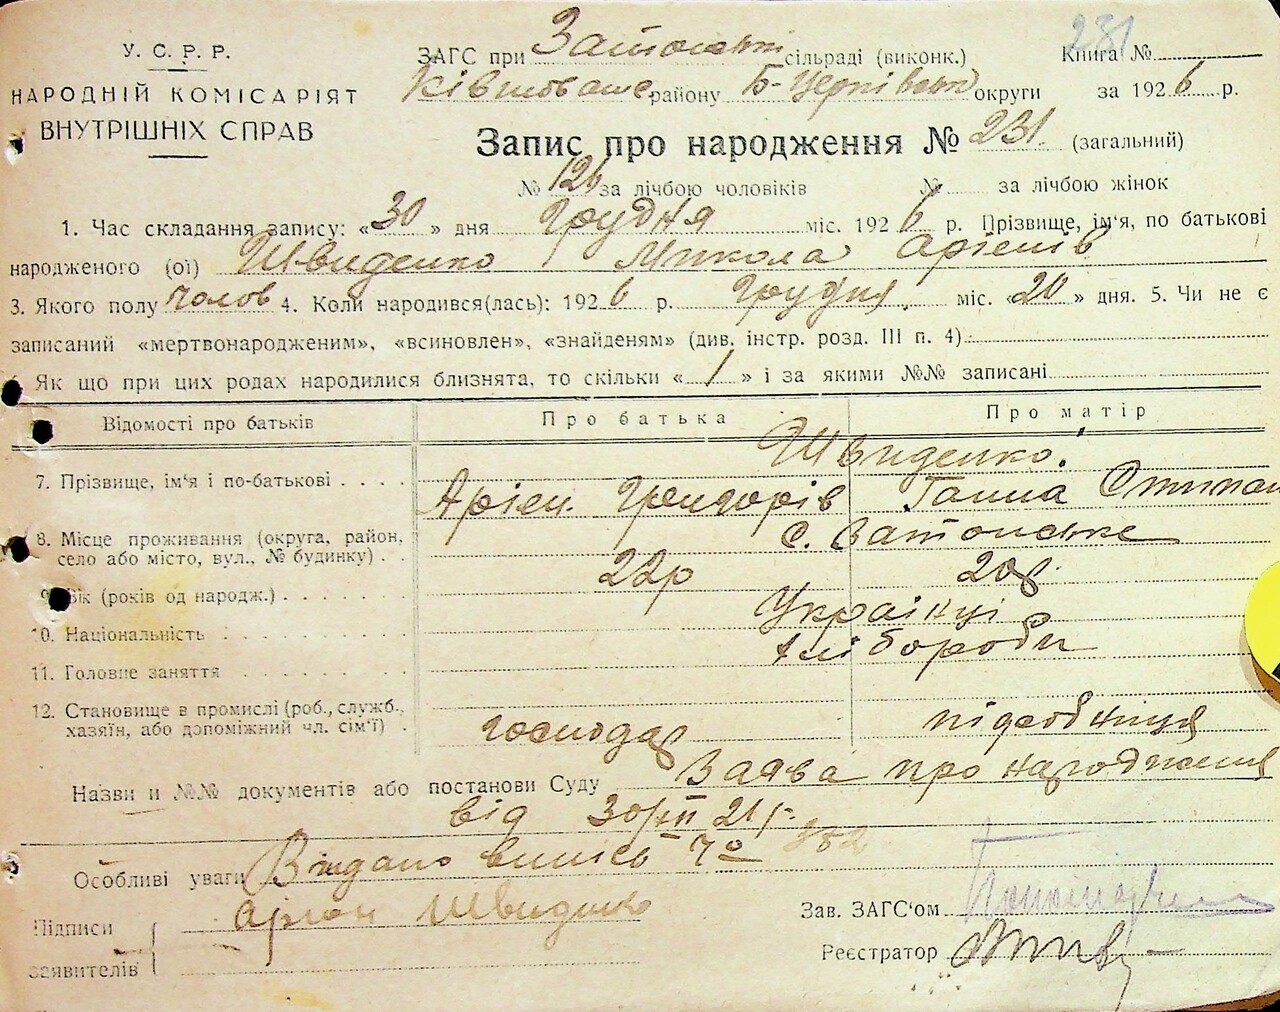 У. С. Р. Р.
НАРОДНІЙ КОМІСАРІЯТ
ВНУТРІШНІХ СПРАВ
231
ЗАГС при Затонські сільраді (виконк.) Книга №
району Б-Церківськ округи за 1926 р.
Запис про народження № 231. (загальний)
№ 126 за лічбою чоловіків № за лічбою жінок
1. Час складання запису: «30» дня Грудня міс. 1926 р. Прізвище, ім'я, по батькові
народженого (ої) Швиденко Микола Арієнів
3. Якого полу Чолов 4. Коли народився(лась): 1926 р. Грудня міс. «20» дня. 5. Чи не є
записаний «мертвонародженим», «всиновлен», «знайденям» (див. інстр. розд. III п. 4)
Як що при цих родах народилися близнята, то скільки «1» і за якими №№ записані
Відомості про батьків Про батька Про матір
Швиденко
7. Прізвище, ім'я і по-батькові Арієн Григорів Ганна Степан
8. Місце проживання (округа, район, село або місто, вул., № будинку) с. Затонське
9. Вік (років од народж.) 22р 20р
10. Національність Українці
11. Головне заняття Хлібороби
12. Становище в промислі (роб., служб., хазяїн, або допоміжний чл. сім'ї) господар
Назви и №№ документів або постанови Суду Заява про народження
від
Особливі уваги Видано випись
Підписи Арієн Швиденко
заявителів
Зав. ЗАГС'ом
Реєстратор